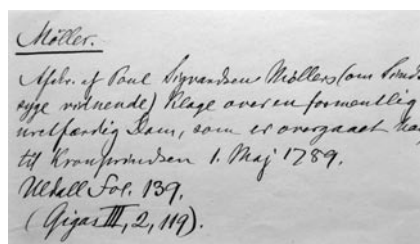 Møller.
Afskr. af Poul Sigvardsens Møllers (om Sinds
syge vidnende) Klage over en formentlig
uretfærdig Dom, som er overgaaet
til Kronprindsen 1. Maj 1789.
Uldall Fol. 139.
(Gigas III, 2, 119).